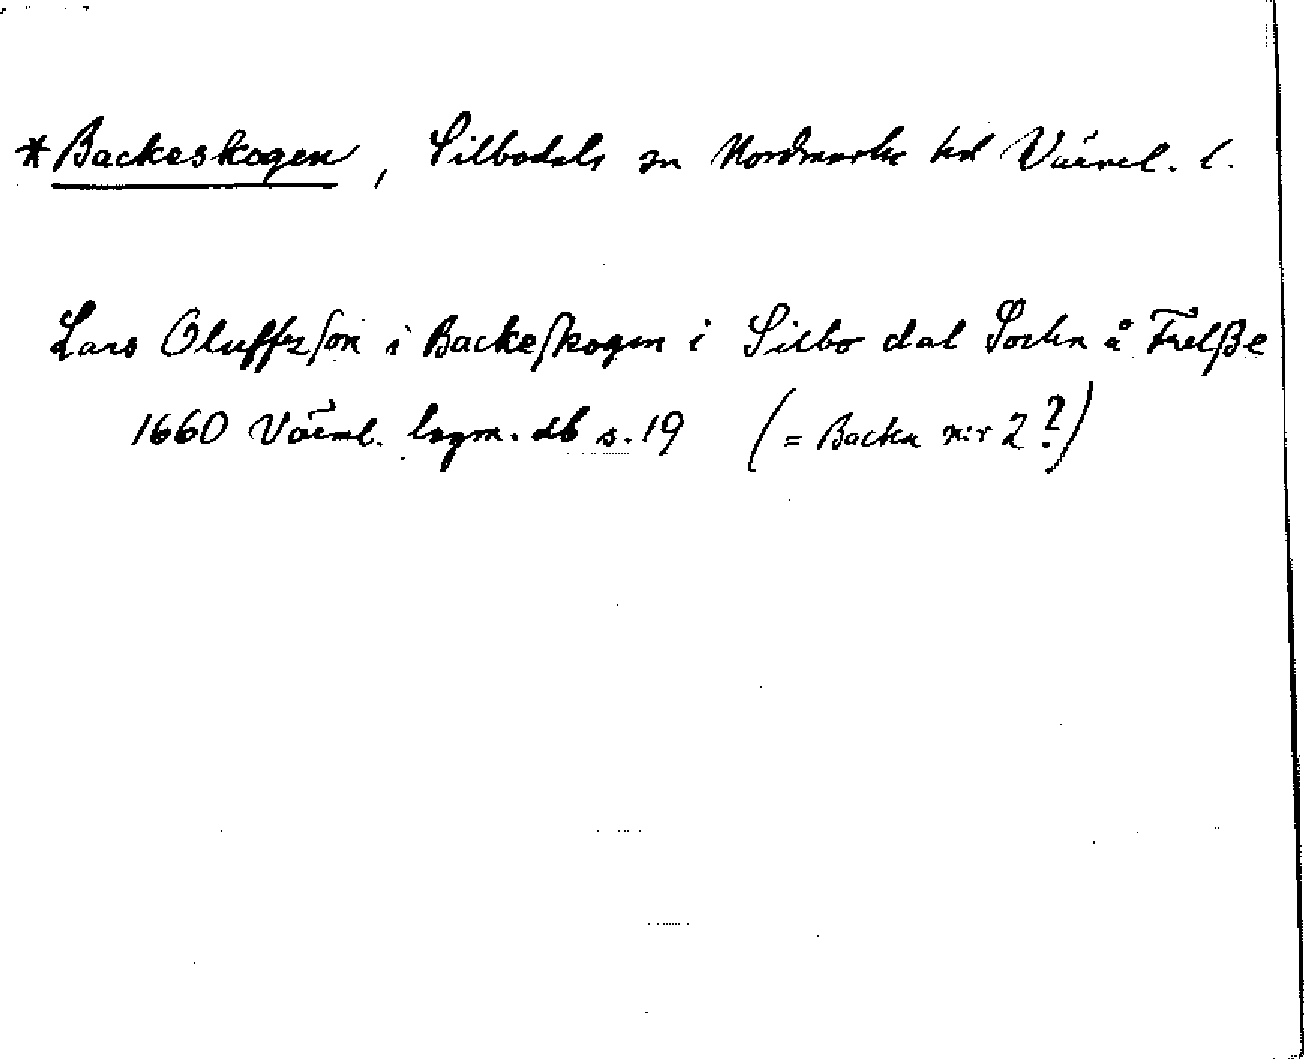 *Backeskogen, Silbodals sn Nordmarks hd Värml. l.
Lars Oluffzſon i Backeſkogen i Silbo dal Sochn å Frelße
1660 Värml. lagm. db s. 19 (= Backa nr 2?)